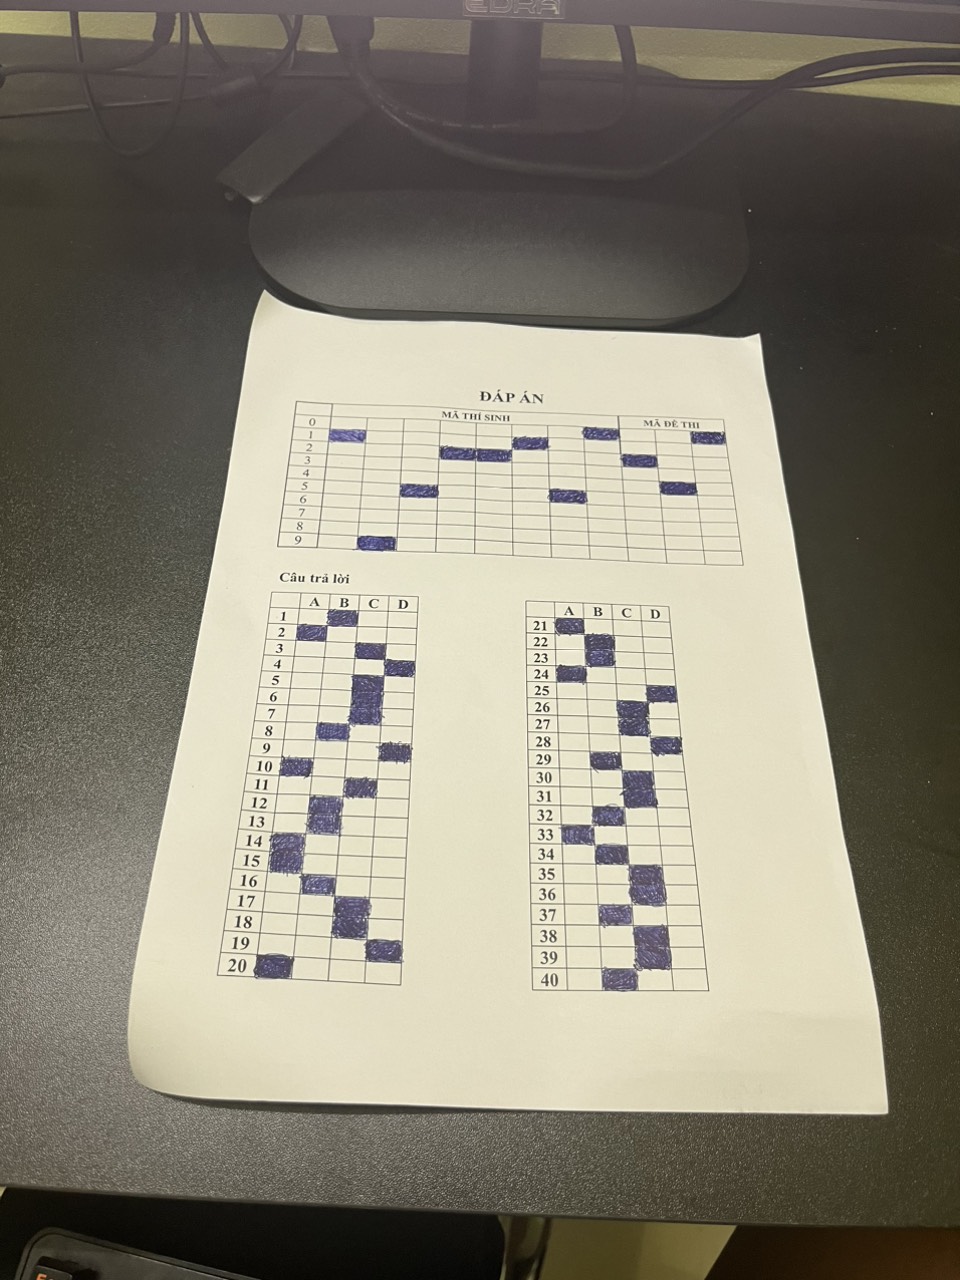 EDRA
ĐÁP ÁN
MÃ THÍ SINH MÃ ĐỀ THI
0
1
2
3
4
5
6
7
8
9
Câu trả lời
A B C D
1
2
3
4
5
6
7
8
9
10
11
12
13
14
15
16
17
18
19
20
A B C D
21
22
23
24
25
26
27
28
29
30
31
32
33
34
35
36
37
38
39
40